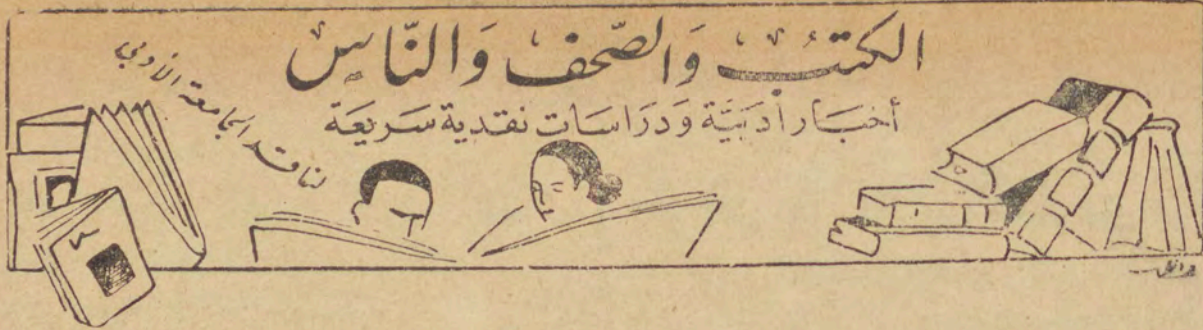 الكتب والصحف والناس
أخبار أدبية ودراسات نقدية سريعة
لناقد الجامعة الأدبي